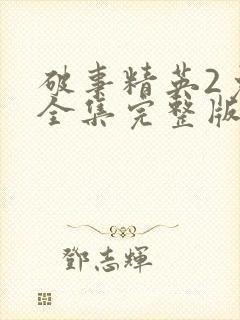 破事精英2
全集完整版
鄧志輝